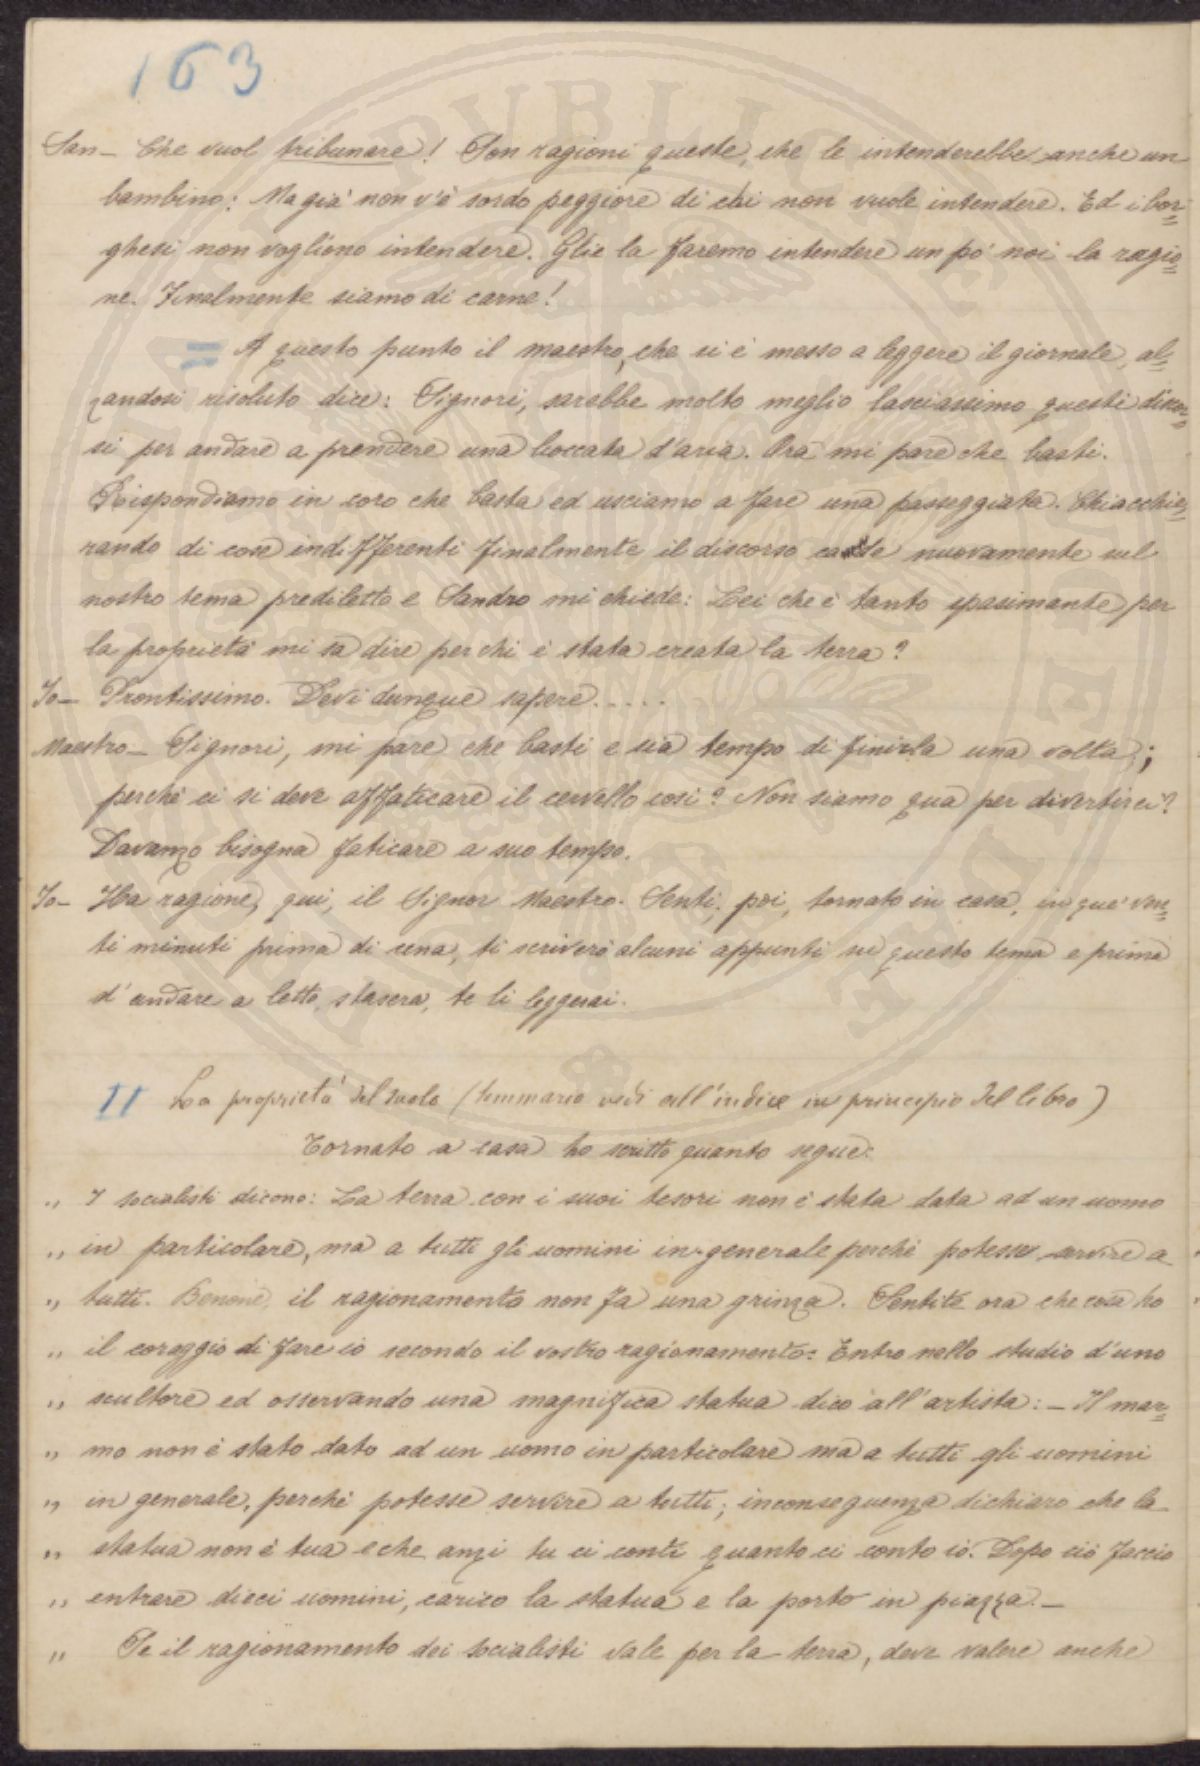 163
San– Che vuol tribunare! Son ragioni queste, che le intenderebbe anche un
bambino: Ma già non v'è sordo peggiore di chi non vuole intendere. Ed i bor=
ghesi non vogliono intendere. Glie la faremo intendere un pò noi la ragio=
ne. Finalmente siamo di carne!
= A questo punto il maestro, che si è messo a leggere il giornale, al=
zandosi risoluto dice: Signori, sarebbe molto meglio lasciassimo questi discor=
si per andare a prendere una boccata d'aria. Ora mi pare che basti.
Rispondiamo in coro che basta ed usciamo a fare una passeggiata. Chiacchie=
rando di cose indifferenti finalmente il discorso cadde nuovamente sul
nostro tema prediletto e Sandro mi chiede: Lei che è tanto spasimante per
la proprietà mi sa dire per chi è stata creata la terra?
Io– Prontissimo. Devi dunque sapere.....
Maestro– Signori, mi pare che basti e sia tempo di finirla una volta;
perchè ci si deve affaticare il cervello così? Non siamo qua per divertirci?
Davanzo bisogna faticare a suo tempo.
Io– Ha ragione, qui, il Signor Maestro. Senti, poi, tornato in casa, in que' ven=
ti minuti prima di cena, ti scriverò alcuni appunti su questo tema e prima
d'andare a letto, stasera, te li leggerai.
II La proprietà del suolo (Sommario vedi all'indice in principio del libro)
Tornato a casa ho scritto quanto segue:
„ I socialisti dicono: La terra con i suoi tesori non è stata data ad un uomo
„ in particolare, ma a tutti gli uomini in generale perchè potesse servire a
„ tutti. Benone, il ragionamento non fa una grinza. Sentite ora che cosa ho
„ il coraggio di fare io secondo il vostro ragionamento: Entro nello studio d'uno
„ scultore ed osservando una magnifica statua dico all'artista: – Il mar=
„ mo non è stato dato ad un uomo in particolare ma a tutti gli uomini
„ in generale, perchè potesse servire a tutti; inconseguenza dichiaro che la
„ statua non è tua e che anzi tu ci conti quanto ci conto io. Dopo ciò faccio
„ entrare dieci uomini, carico la statua e la porto in piazza. –
„ Se il ragionamento dei socialisti vale per la terra, deve valere anche